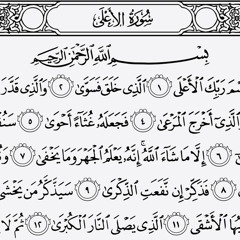 سُورَةُ الأَعْلَى
بِسْمِ اللَّهِ الرَّحْمَٰنِ الرَّحِيمِ
رَبِّكَ الْأَعْلَى ١ الَّذِي خَلَقَ فَسَوَّىٰ ٢ وَالَّذِي قَدَّرَ
الَّذِي أَخْرَجَ الْمَرْعَىٰ ٤ فَجَعَلَهُ غُثَاءً أَحْوَىٰ ٥
٦ إِلَّا مَا شَاءَ اللَّهُ إِنَّهُ يَعْلَمُ الْجَهْرَ وَمَا يَخْفَىٰ ٧
٨ فَذَكِّرْ إِن نَّفَعَتِ الذِّكْرَىٰ ٩ سَيَذَّكَّرُ مَن يَخْشَىٰ
الْأَشْقَى ١١ الَّذِي يَصْلَى النَّارَ الْكُبْرَىٰ ١٢ ثُمَّ لَا